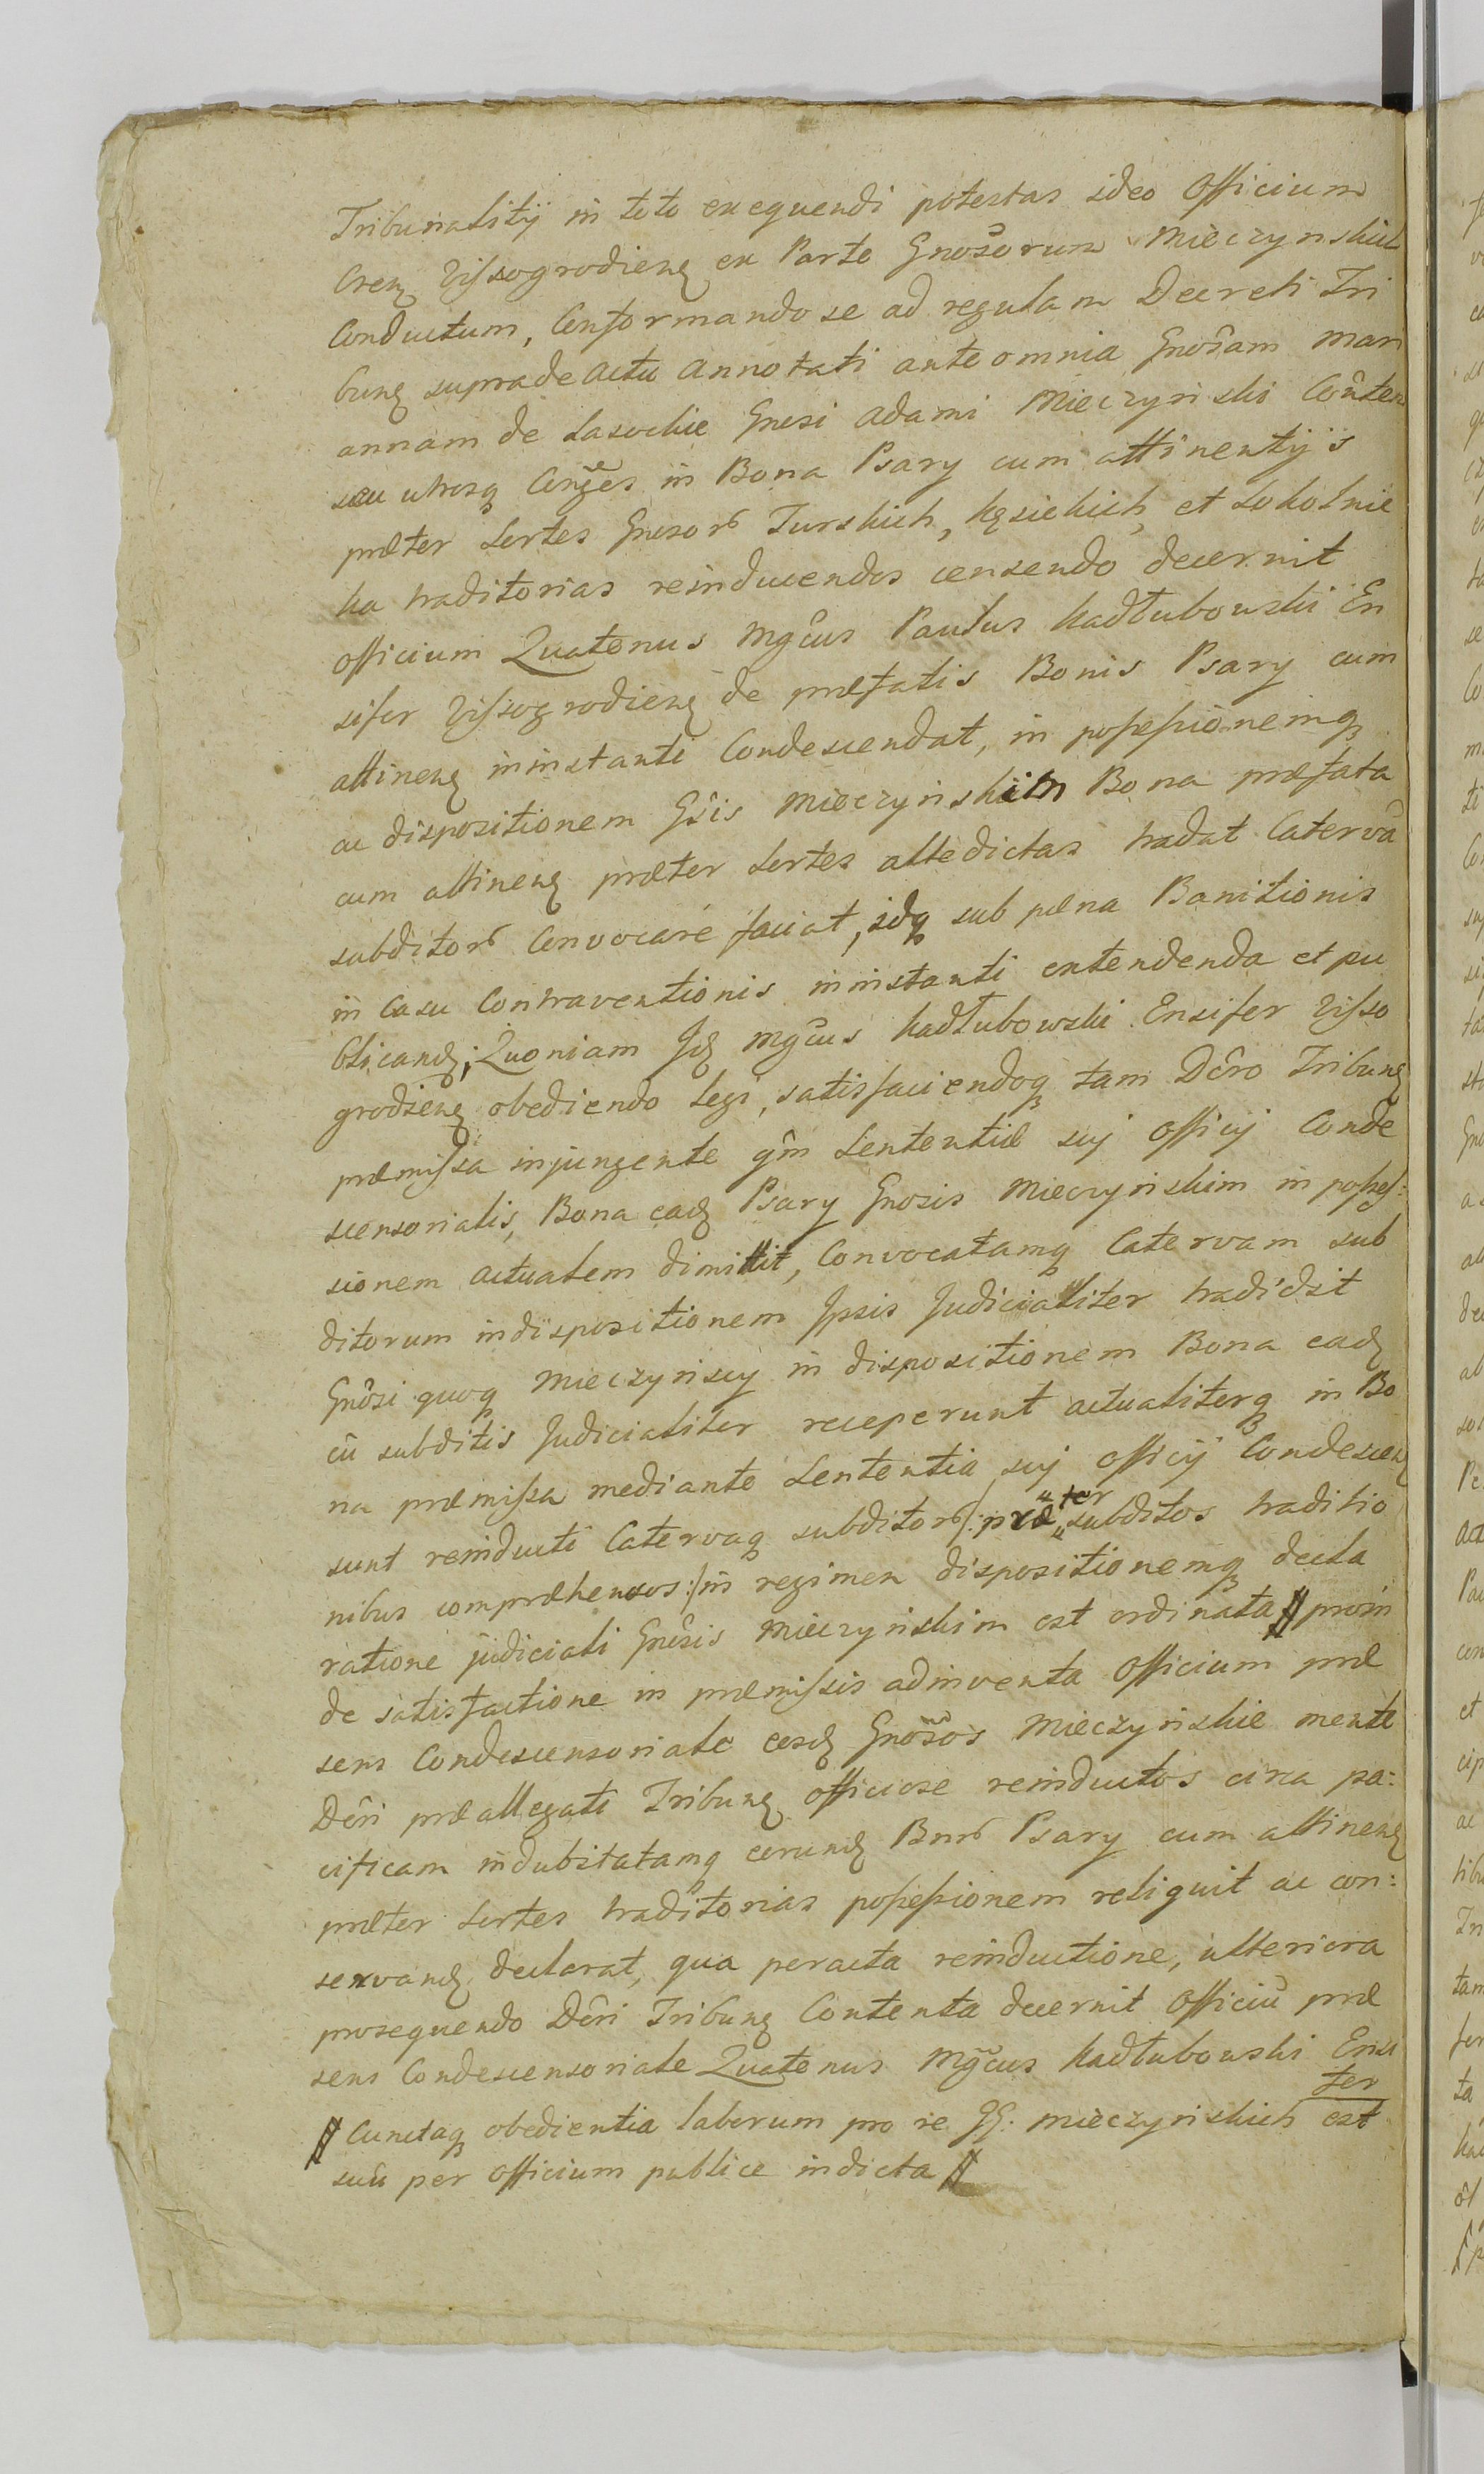 Tribunalitij in toto exequendi potestas ideo Officium
Cren̄ Vissogrodien̄ ex Parte Gnosorum Mieczynskich
Conductum, Conformando se ad regulam Decreti Tri
bun̄ supra de Actu Annotati ante omnia Gnosam Mari
annam de Lasockie Gnosi Adami Mieczynski Conten
seu utrosq Conges in Bona Psary cum attinentijs
præter Sortes Gnosor Turskich, Kęsickich, et Sokolnic
ka traditorias reinducendos censendo decernit
Officium Quatenus Mgcus Paulus Kadłubowski En
sifer Vissogrodien̄ de præfatis Bonis Psary cum
attinen̄ ininstanti Condescendat, in possessionemq
ac dispositionem Gsis Mieczynskim Bona præfata
cum attinen̄ præter Sortes attedictas tradat Catervā
subditor Convocare faciat, idq sub pæna Banitionis
in casu Contraventionis ininstanti extendenda et pu
blicand; Quoniam Jd Mgcus Kadłubowski Ensifer Visso
grodien̄ obediendo legi, satisfaciendoq tam Dêro Tribun̄
præmissa injungente qm Sententiæ sui Officij Conde
scensorialis, Bona ead Psary Gnosis Mieczynskim in posses:
sionem actualem dimittit, Convocatamq Catervam sub
ditorum indispositionem Jpsis Judicialiter tradidit
Gnosi quoq Mieczynscy in dispositionem Bona ead
cū subditis Judicialiter receperunt actualiterq in Bo
na præmissa mediante Sententia sui Officij Condescen̄
sunt reinducti Catervaq subditor /: præter subditos traditio
nibus compræhensos :/ in regimen dispositionemq decla
ratione judiciali Gnosis Mieczynskim est ordinata // proin
de satisfactione in præmissis adinventa Officium præ
sens Condescensoriale eosd Gnosos Mieczynskie mente
Dêri præallegati Tribun̄ officiose reinductos circa pa:
cificam indubitatamq eorund Bnor Psary cum attinen̄
præter Sortes traditorias possessionem reliquit ac con:
servand declarat, qua peracta reinductione, ulteriora
prosequendo Dêri Tribun̄ Contenta decernit Officiū præ
sens Condescensoriale Quatenus Mgcus Kadłubowski Ensi
fer
// Cunctaq obedientia laborum pro re GG. Mieczynskich est
suū per Officium publice indicta //